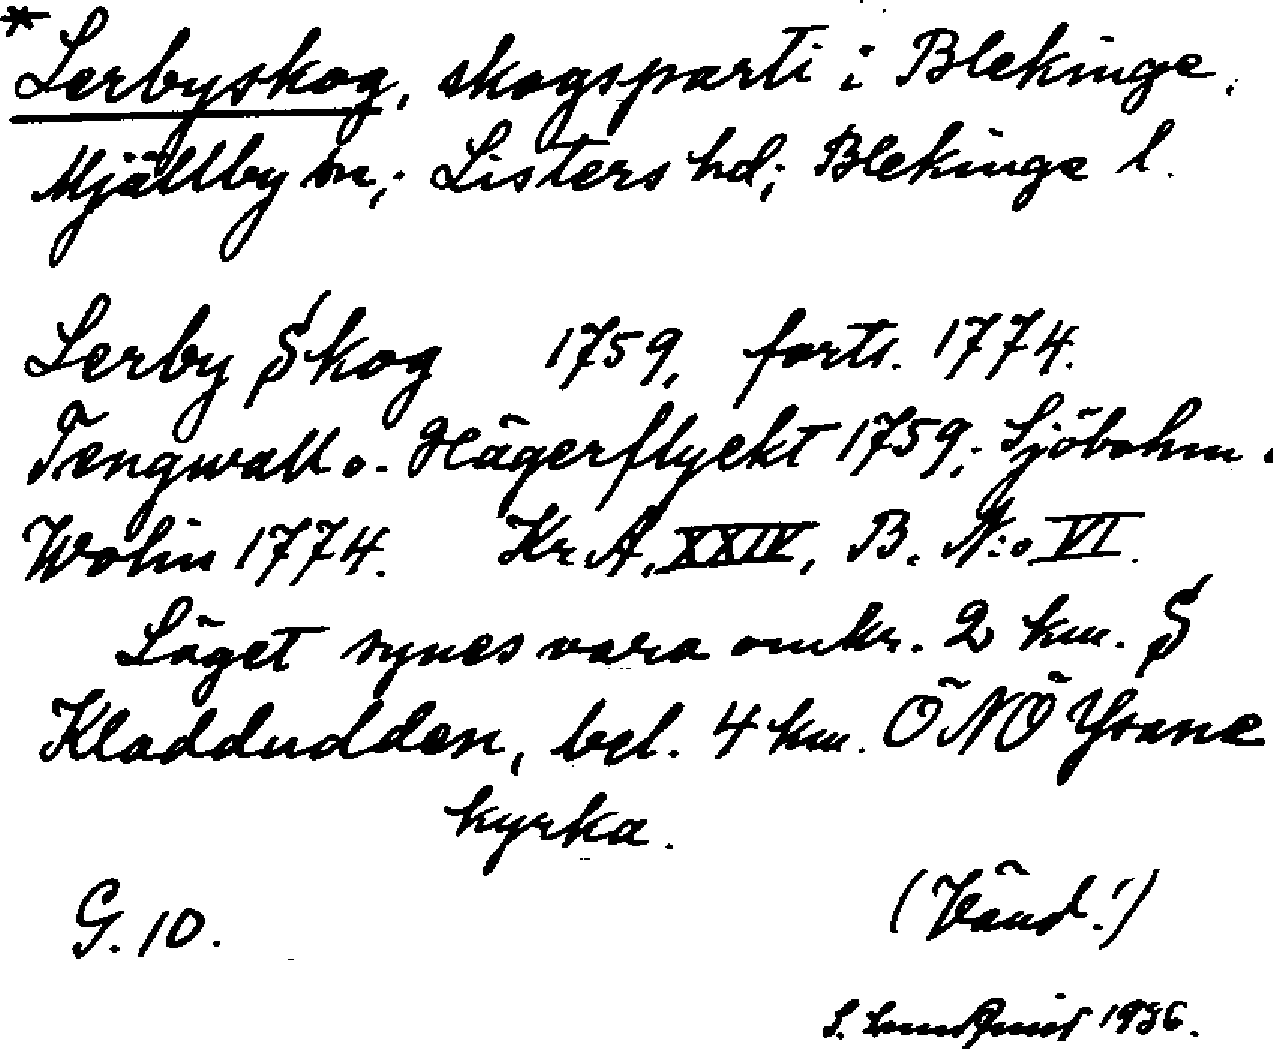 * Lerbyskog, skogsparti i Blekinge.
Mjällby sn; Listers hd; Blekinge l.
Lerby Skog 1759, forts. 1774.
Tengwall o. Hägerflyckt 1759; Sjöbohm o.
Wohin 1774. Kr.A, XXIV, B. N:o VI.
Läget synes vara omkr. 2 km. S
Kladdudden, bel. 4 km. ÖNÖ Ysane
kyrka.
G. 10. (Vänd!)
S. 1936.